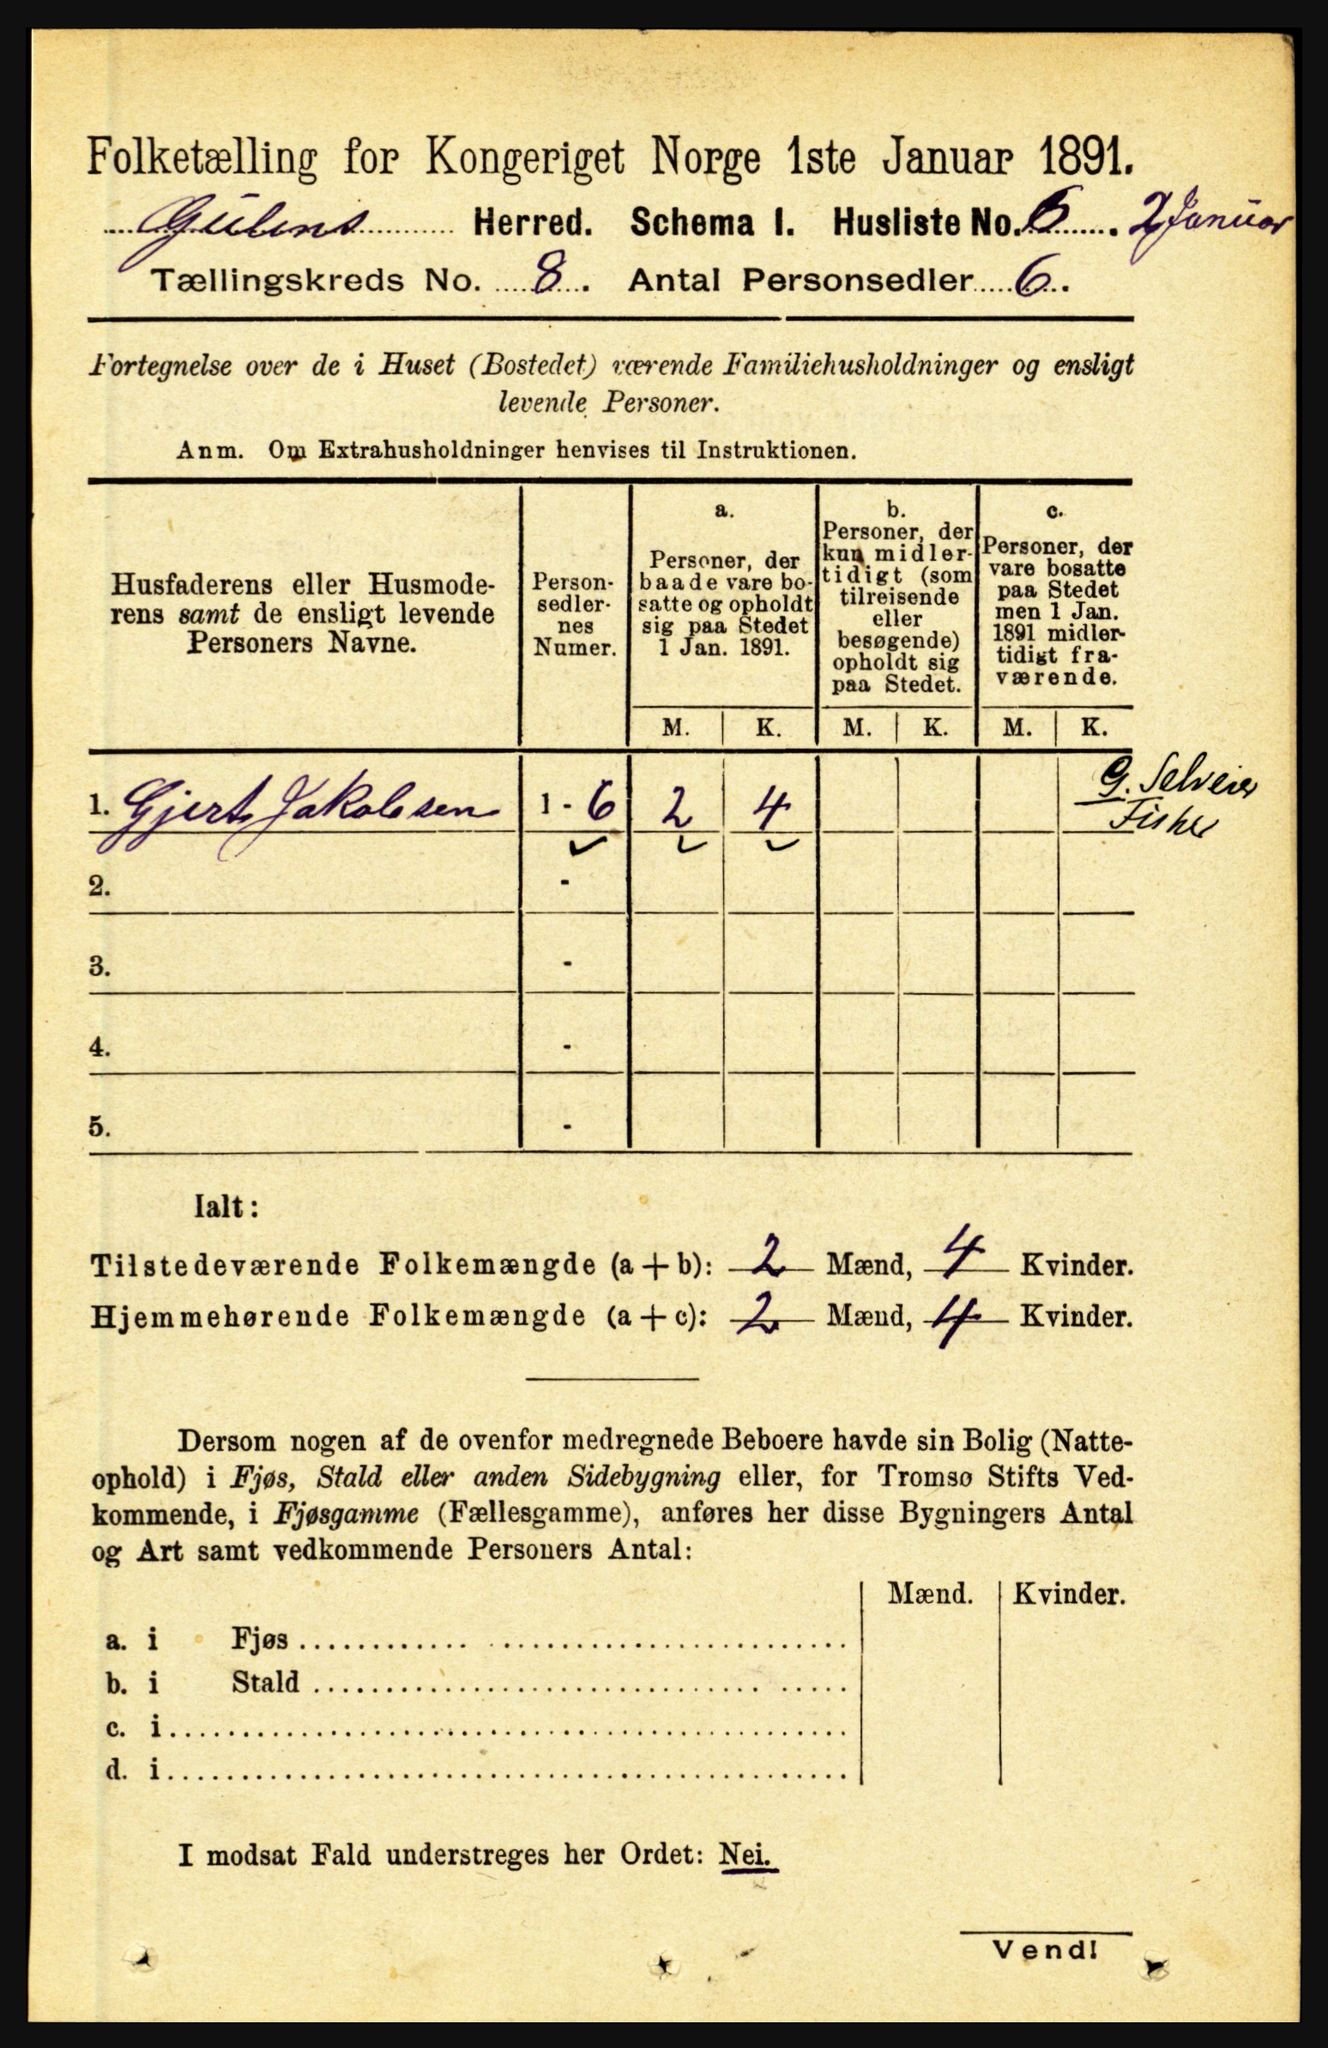 Folketælling for Kongeriget Norge 1ste Januar 1891.
Gulens Herred. Schema I. Husliste No. 6. 2 Januar
Tællingskreds No. 8. Antal Personsedler 6.
Fortegnelse over de i Huset (Bostedet) værende Familiehusholdninger og ensligt
levende Personer.
Anm. Om Extrahusholdninger henvises til Instruktionen.
Husfaderens eller Husmode-
rens samt de ensligt levende
Personers Navne.
Person-
sedler-
nes
Numer.
a.
Personer, der
baade vare bo-
satte og opholdt
sig paa Stedet
1 Jan. 1891.
b.
Personer, der
kun midler-
tidigt (som
tilreisende
eller
besøgende)
opholdt sig
paa Stedet.
c.
Personer, der
vare bosatte
paa Stedet
men 1 Jan.
1891 midler-
tidigt fra-
værende.
M. K. M. K. M. K.
1. Gjert Jakobsen 1 - 6 2 4 G. Selveier
Fisker
2. -
3. -
4. -
5. -
Ialt:
Tilstedeværende Folkemængde (a + b): 2 Mænd, 4 Kvinder.
Hjemmehørende Folkemængde (a + c): 2 Mænd, 4 Kvinder.
Dersom nogen af de ovenfor medregnede Beboere havde sin Bolig (Natte-
ophold) i Fjøs, Stald eller anden Sidebygning eller, for Tromsø Stifts Ved-
kommende, i Fjøsgamme (Fællesgamme), anføres her disse Bygningers Antal
og Art samt vedkommende Personers Antal:
Mænd. Kvinder.
a. i Fjøs
b. i Stald
c. i
d. i
I modsat Fald understreges her Ordet: Nei.
Vend!